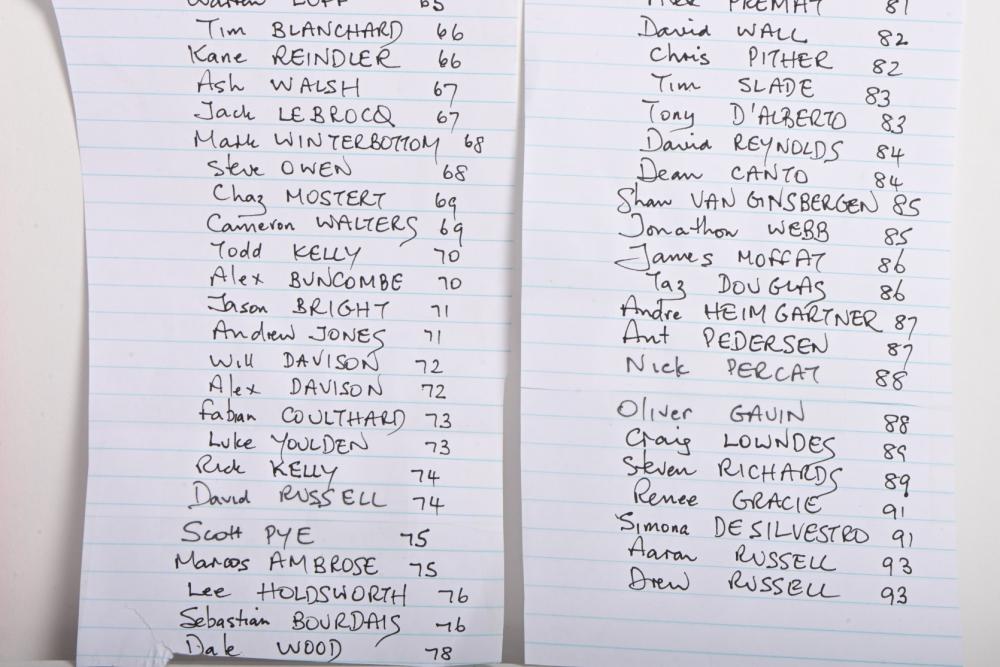 Warren LUFF 65
Tim BLANCHARD 66
Kane REINDLER 66
Ash WALSH 67
Jack LEBROCQ 67
Mark WINTERBOTTOM 68
Steve OWEN 68
Chaz MOSTERT 69
Cameron WALTERS 69
Todd KELLY 70
Alex BUNCOMBE 70
Jason BRIGHT 71
Andrew JONES 71
Will DAVISON 72
Alex DAVISON 72
Fabian COULTHARD 73
Luke YOULDEN 73
Rick KELLY 74
David RUSSELL 74
Scott PYE 75
Marcos AMBROSE 75
Lee HOLDSWORTH 76
Sebastian BOURDAIS 76
Dale WOOD 78
PREMAT 81
David WALL 82
Chris PITHER 82
Tim SLADE 83
Tony D'ALBERTO 83
David REYNOLDS 84
Dean CANTO 84
Shaw VAN GINSBERGEN 85
Jonathon WEBB 85
James MOFFAT 86
Taz DOUGLAS 86
Andre HEIMGARTNER 87
Ant PEDERSEN 87
Nick PERCAT 88
Oliver GAVIN 88
Craig LOWNDES 89
Steven RICHARDS 89
Renee GRACIE 91
Simona DE SILVESTRO 91
Aaron RUSSELL 93
Drew RUSSELL 93